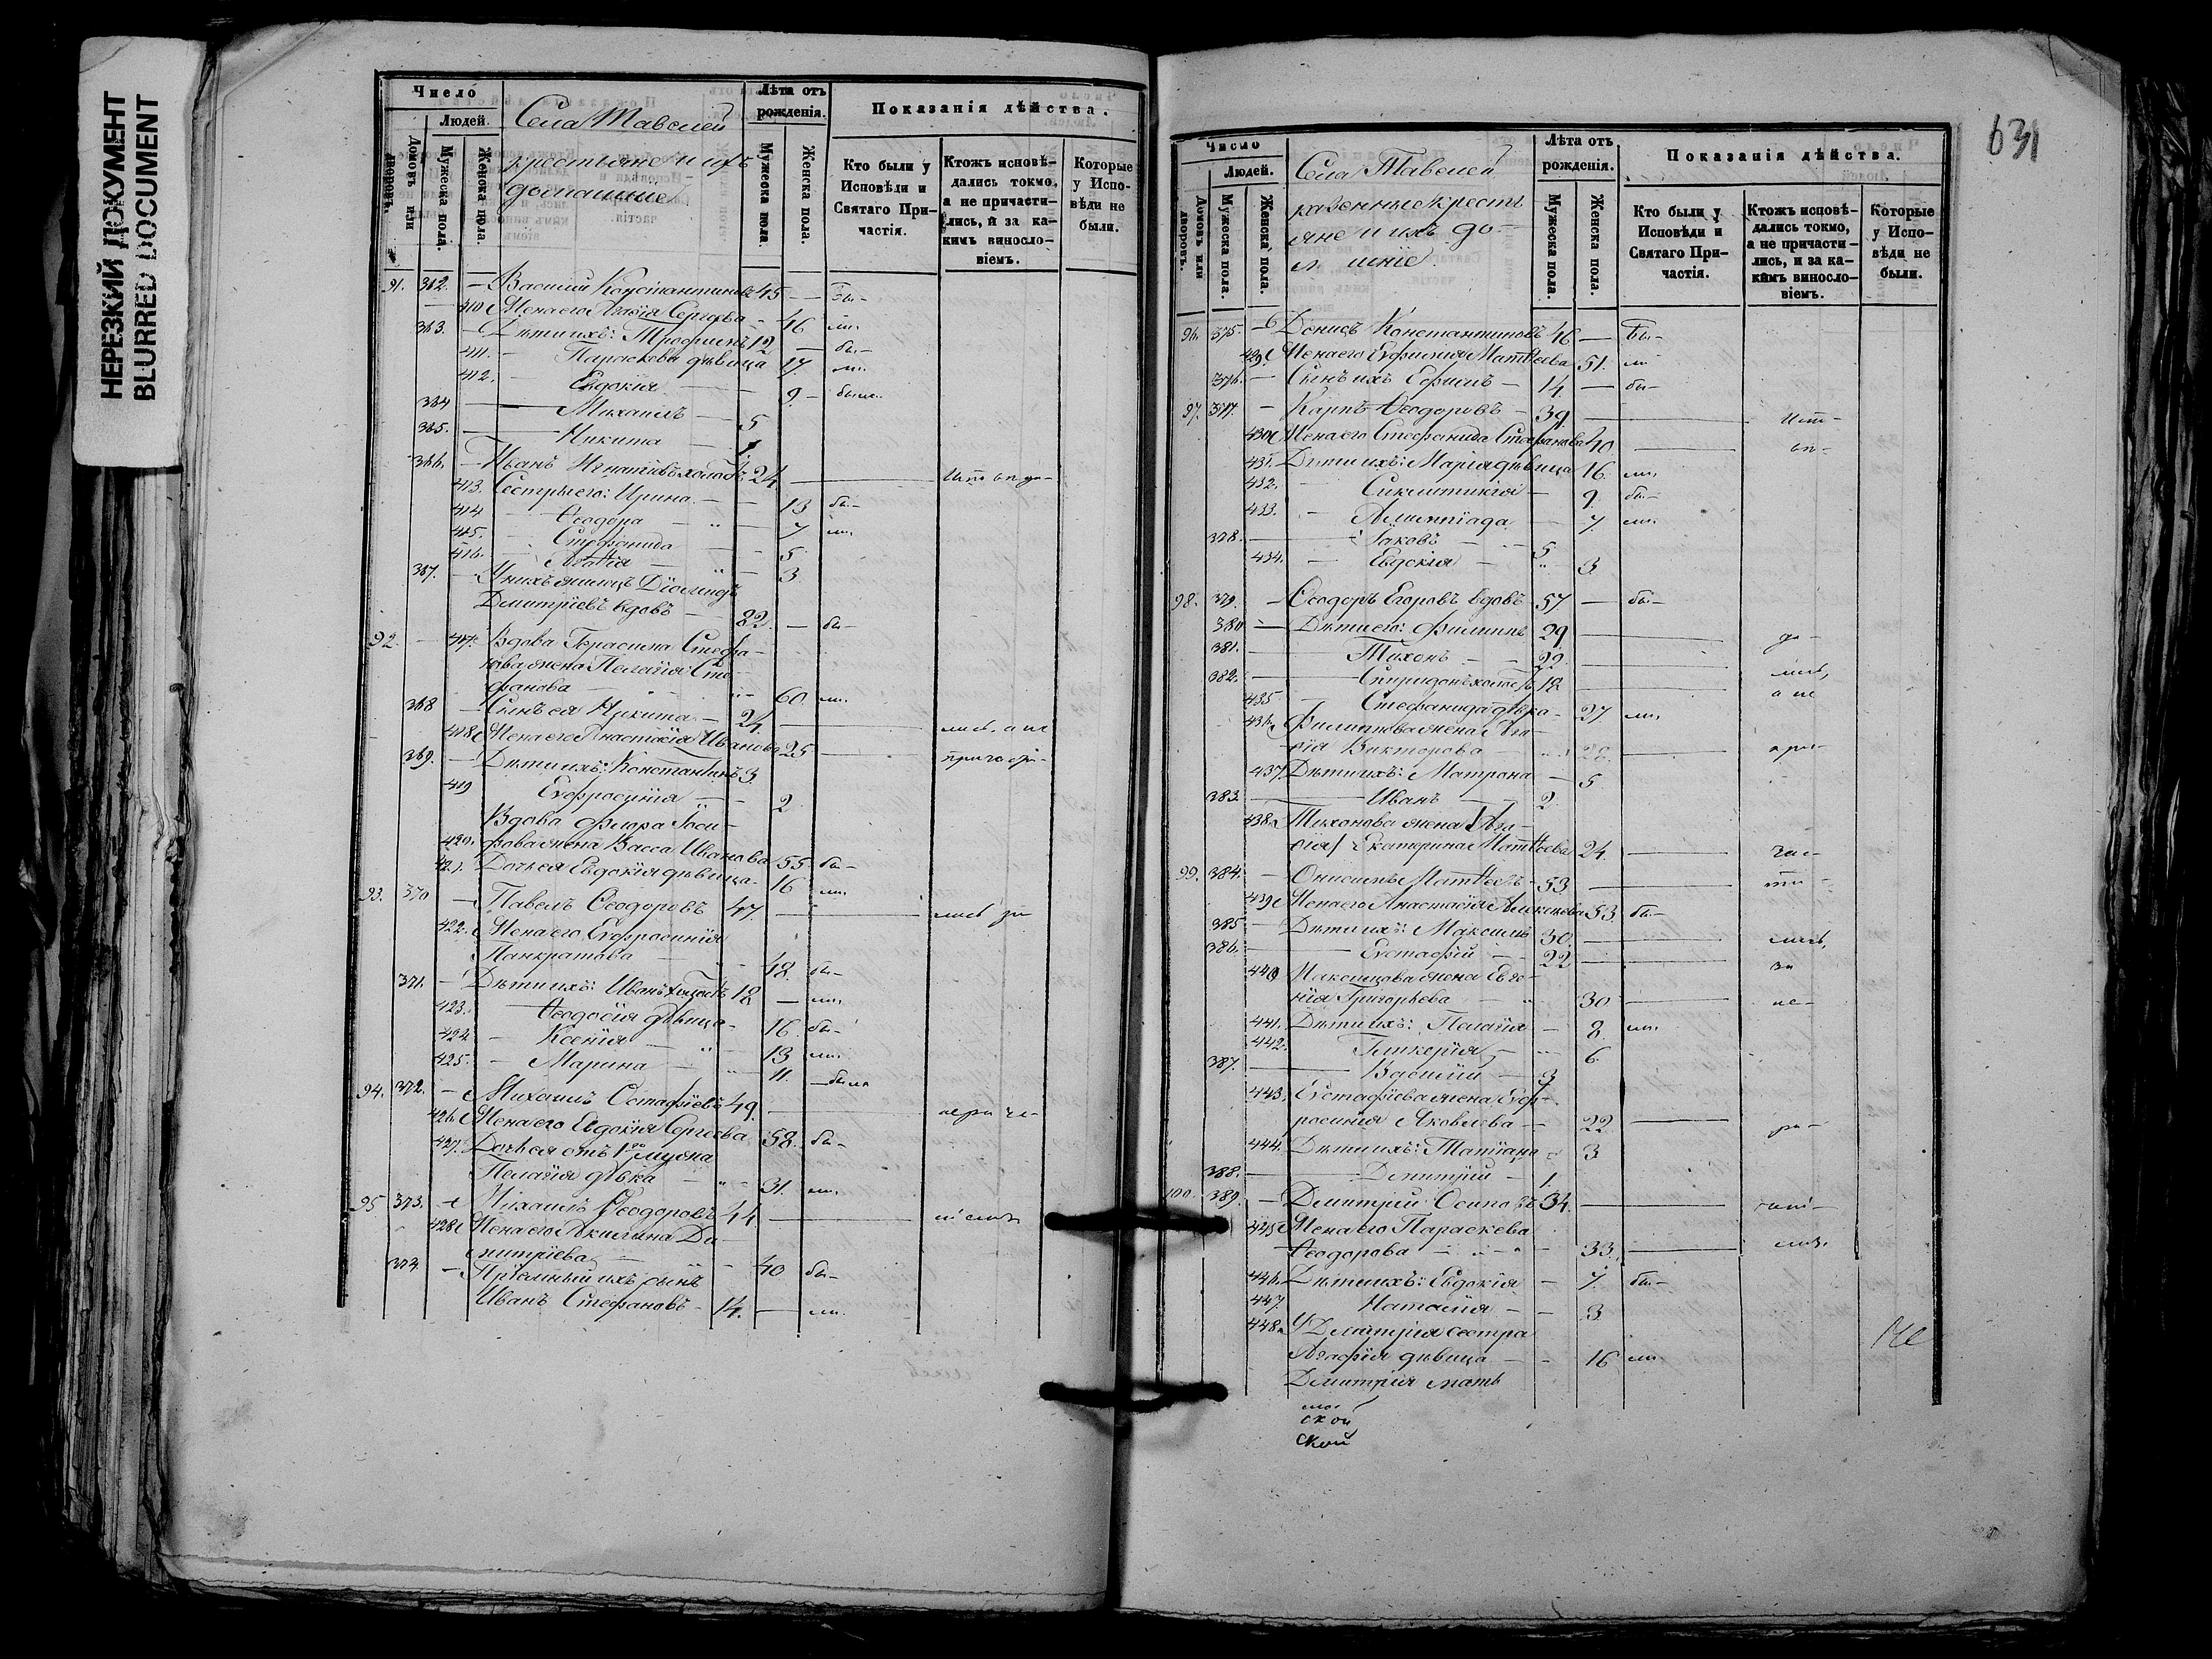 НЕРЕЗКИЙ ДОКУМЕНТ
BLURRED DOCUMENT
Число
Людей.
Домовъ или дворовъ.
Мужеска пола.
Женска пола.
Села Тавелей
крестьяне и ихъ
домашніе
Лѣта отъ рожденія.
Мужеска пола.
Женска пола.
Показанія дѣйства.
Кто были у Исповѣди и Святаго Причастія.
Ктожъ исповѣдались токмо, а не причастились, и за какимъ винословіемъ.
Которые у Исповѣди не были.
91. 362. — Василій Константиновъ 45 — Бы—
410 Жена его Сергѣева — 46 ли.
363. — Дѣти ихъ: Трофимъ 12 — бы—
411. — Параскева дѣвица 17 ли.
412. — Евдокія — 9 — была.
364 — Михаилъ — 5
365. — Никита — 1
366. — Иванъ Игнатіевъ холостъ 24
413. Сестры его: Ирина — 13 бы—
414 — Ѳеодора — 7 ли.
415. — Стефанида — 5
416. — Агафія — 3.
367. — У нихъ жилецъ
Дмитріевъ вдовъ — 82. — бы—
92. — 417. Вдова Герасима Стефа-
нова жена Пелагія Сте-
фанова — 60 ли.
368 — Сынъ ея Никита — 24
418 Жена его Анастасія Иванова 25
369. — Дѣти ихъ: Константинъ 3.
419 Евфросинія — 2
Вдова Флора Іоси-
420. фова жена Васса Иванова 55 бы—
421. Дочь ея Евдокія дѣвица — 16 ли.
93. 370 — Павелъ Ѳеодоровъ 47.
422. Жена его Евфросинія
Панкратова — 48. бы—
371. — Дѣти ихъ: Иванъ холостъ 18 — ли.
423. Ѳеодосія дѣвица — 16. бы—
424 — Ксенія — 13 ли.
425. — Марина — 11. — была
94. 372. — Михаилъ Остафіевъ 49.
426. Жена его Евдокія Сергеева 58. бы—
427. Дочь ея отъ 1го мужа
Пелагія дѣвка — 31. ли.
95 373. — Михаилъ Ѳеодоровъ 44.
428 Жена его Акилина Ди-
митріева — 40 бы—
374. — Пріемный ихъ сынъ
Иванъ Стефановъ — 14. — ли.
631
Число
Людей.
Домовъ или дворовъ.
Мужеска пола.
Женска пола.
Села Тавелей
казенные кресть
яне и ихъ до-
м шніе.
Лѣта отъ рожденія.
Мужеска пола.
Женска пола.
Показанія дѣйства.
Кто были у Исповѣди и Святаго Причастія.
Ктожъ исповѣдались токмо, а не причастились, и за какимъ винословіемъ.
Которые у Исповѣди не были.
96. 375. — Денисъ Константиновъ 46 — Бы—
429. Жена его Евфимія Матѳеева 51. ли
376. — Сынъ ихъ Ефимъ — 14. — бы—
97. 377. — Карпъ Ѳеодоровъ — 39.
430 Жена его Стефанида Стефанова 40.
431. Дѣти ихъ: Марія дѣвица 16. ли.
432. Синклитикія — 9. бы—
433. — Алимпіада — 7. ли.
378. — Іаковъ — 5
434. — Евдокія — 3.
98. 379. — Ѳеодоръ Егоровъ вдовъ 57 — бы—
380 — Дѣти его: Филиппъ 29
381. — Тихонъ — 22.
382. — Спиридонъ холостъ 18
435 — Стефанида дѣвка — 27 ли.
436. Филиппова жена Ага-
фія Викторова — 28.
437. Дѣти ихъ: Матрона — 5
383. — Иванъ — 2.
438. Тихонова жена
Екатерина Матѳеева 24.
99. 384. — Онисимъ Матѳеевъ 53
439 Жена его Анастасія Алексеева 53. бы—
385 — Дѣти ихъ: Максимъ 30.
386. — Евстафій — 22
440 Максимова жена Евге-
нія Григорьева — 30
441. Дѣти ихъ: Пелагія — 8. ли.
442. Гликерія — 6.
387. — Василій — 3
443. Евстафіева жена Евф-
росинія Яковлева — 22
444. Дѣти ихъ: Татіана — 3
388. — Димитрій — 1.
100. 389. — Димитрій Осиповъ 34.
445 Жена его Параскева
Ѳеодорова — 33.
446. Дѣти ихъ: Евдокія — 7. бы—
447. Наталія — 3
448. У Димитрія сестра
Агафія дѣвица — 16 ли
Димитрія мать
ской
ской